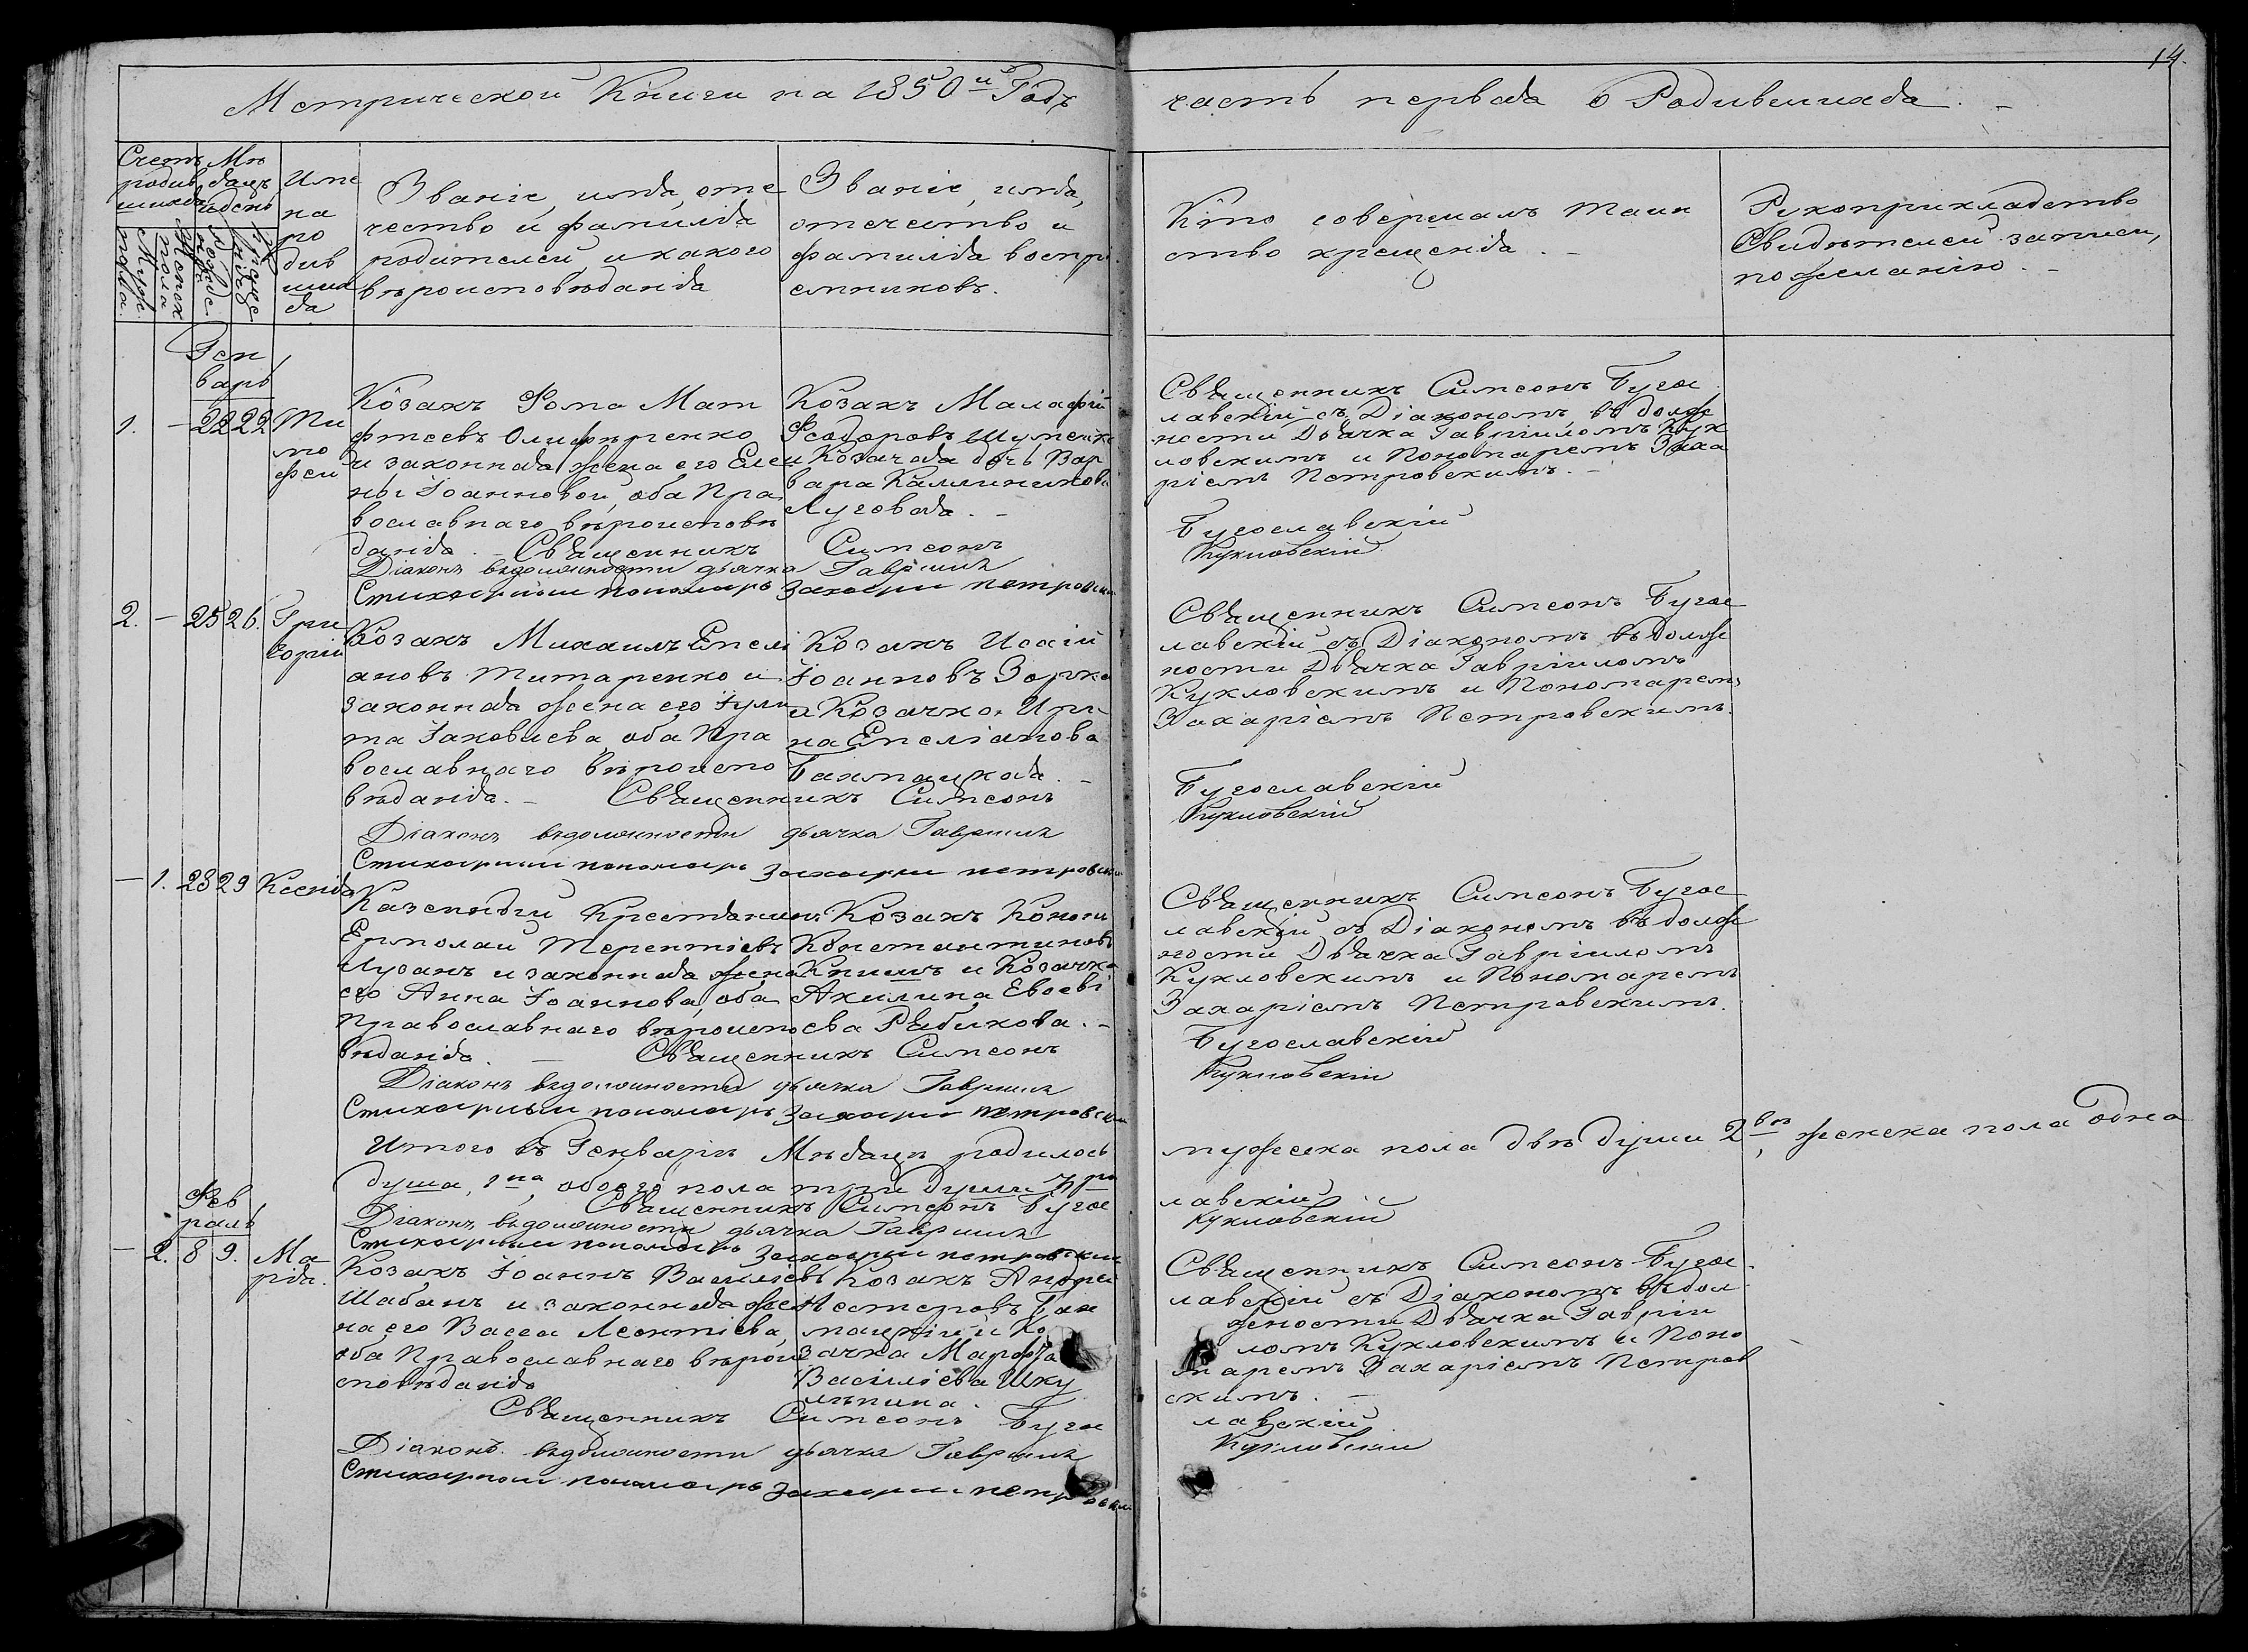 14.
Метрической Книги на 1850й Годъ
часть первая о Родившихся. –
Счетъ родив шихся
Мѣ сяцъ и день
Муж. пола
Женск. пола
рожде нія
креще нія
Име
на
ро
див
ших
ся
Званіе, имя, оте
чество и фамилія
родителей и какого
вѣроисповѣданія
Званіе, имя,
отечество и
фамилія воспри
емниковъ.
Кто совершалъ таин
ство крещенія. –
Рукоприкладство
Свидѣтелей записи,
по желанію. –
Ген
варь
1. – 22 22 Ти
мо
фей
Козакъ Фома Мат
фѣевъ Олиференко
и законная жена его Еле
на Іоанновой, оба Пра
вославнаго вѣроисповѣ
данія. – Священникъ Симеонъ
Діаконъ въ должности дьячка Гавріилъ
Стихарный пономарь Захарій Петровскій
Козакъ Малафій
Феодоровъ Шуменко
и Козачая дочь Вар
вара Каллиникова
Луговая. –
Священникъ Симеонъ Бугос
лавскій съ Діакономъ въ долж
ности Дьячка Гавріиломъ Кук
ловскимъ и Пономаремъ Заха
ріемъ Петровскимъ. –
Бугославскій
Кукловскій
2. – 25 26. Гри
горій
Козакъ Михаилъ Емели
ановъ Титаренко и
законная жена его Іули
та Іаковлева, оба Пра
вославнаго вѣроиспо
вѣданія. – Священникъ Симеонъ
Діаконъ въ должности дьячка Гавріилъ
Стихарный пономарь Захарій Петровскій
Козакъ Исаій
Іоанновъ Зорка
и Козачка Ири
на Емеліанова
Бахмацкая. –
Священникъ Симеонъ Бугос
лавскій съ Діакономъ въ долж
ности Дьячка Гавріиломъ
Кукловскимъ и Пономаремъ
Захаріемъ Петровскимъ.
Бугославскій
Кукловскій
– 1. 28 29 Ксенія
Казенный Крестянинъ
Ермолай Терентіевъ
Лузанъ и законная жена
его Анна Іоаннова, оба
Православнаго вѣроиспо
вѣданія. – Священникъ Симеонъ
Діаконъ въ должности дьячка Гавріилъ
Стихарный пономарь Захарій Петровскій
Козакъ Кононъ
Константиновъ
Книшъ и Козачка
Акилина Евсеві
ева Рябикова. –
Священникъ Симеонъ Бугос
лавскій съ Діакономъ въ долж
ности Дьячка Гавріиломъ
Кукловскимъ и Пономаремъ
Захаріемъ Петровскимъ.
Бугославскій
Кукловскій
Итого въ Генварѣ Мѣсяцѣ родилось
мужеска пола двѣ души 2вѣ, женска пола одна
душа, 1на, обоего пола три души 3ри
Священникъ Симеонъ Бугос
лавскій
Діаконъ въ должности дьячка Гавріилъ
Кукловскій
Стихарный пономарь Захарій Петровскій
Фев
раль
– 2. 8 9. Ма
рія.
Козакъ Іоаннъ Василіевъ
Шабанъ и законная же
на его Васса Леонтіева,
оба Православнаго вѣрои
сповѣданія
Священникъ Симеонъ Бугос
Діаконъ въ должности дьячка Гавріилъ
Стихарный пономарь Захарій Петровскій
Козакъ Андрей
Нестеровъ Бах
мацкій и Ко
зачка Марофа
Василіева Шку
лѣпина.
Священникъ Симеонъ Бугос
лавскій съ Діакономъ въ дол
жности Дьячка Гавріи
ломъ Кукловскимъ и Поно
маремъ Захаріемъ Петров
скимъ. –
лавскій
Кукловскій